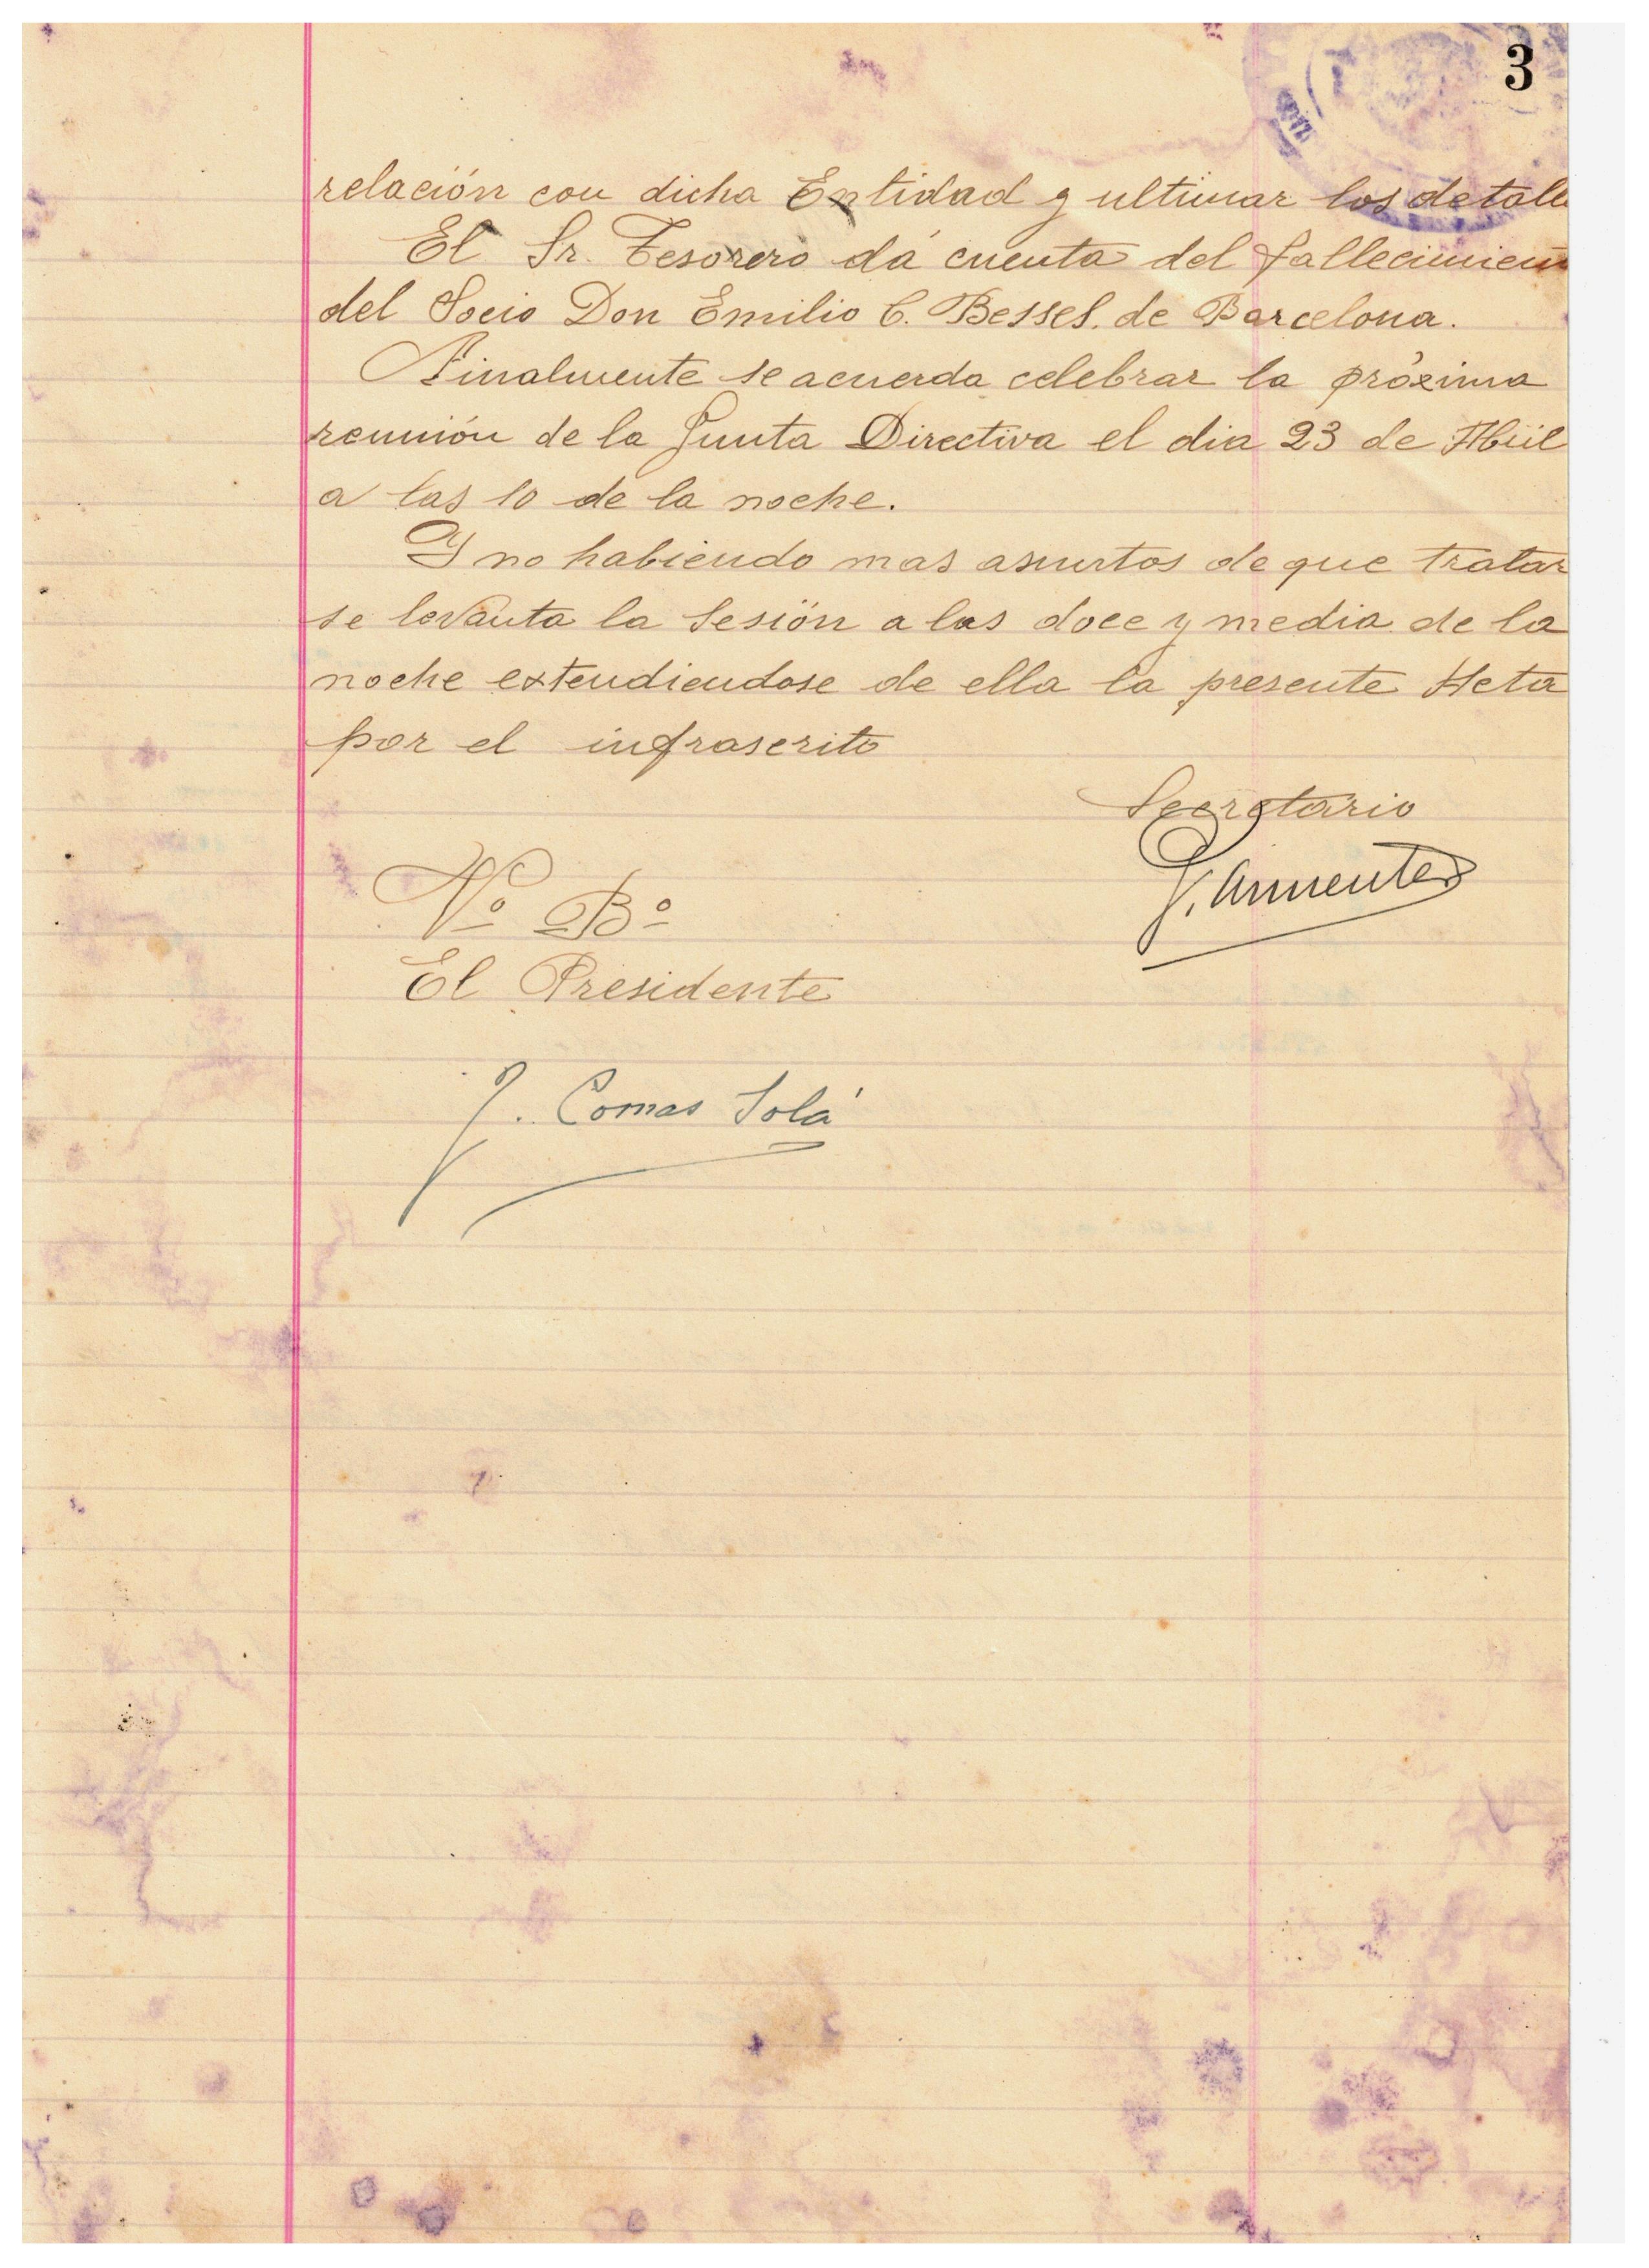 3
relación con dicha Entidad y ultimar los detalle
El Sr. Tesorero dá cuenta del fallecimient
del Socio Don Emilio C. Bessel. de Barcelona.
Finalmente se acuerda celebrar la próxima
reunión de la Junta Directiva el dia 23 de Abril
a las 10 de la noche.
Y no habiendo mas asuntos de que tratar
se levanta la Sesión a las doce y media de la
noche extendiendose de ella la presente Acta
por el infrascrito
Secretario
Armenter
Vº Bº
El Presidente
J. Comas Solá